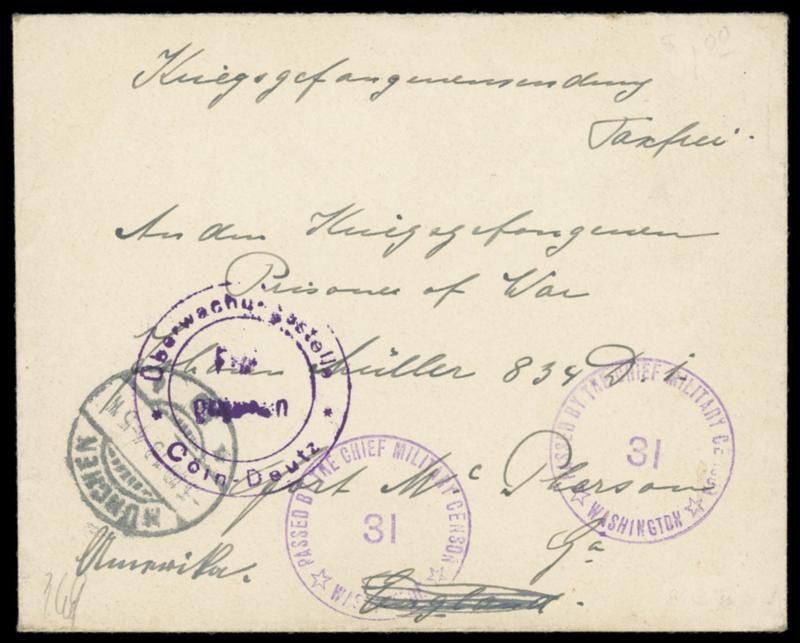 Kriegsgefangenensendung
Taxfrei.
An den Kriegsgefangenen
Prisoner of War
Johann Müller 834 D. i.
Fort Mc Pherson
Ga
Amerika.
England.
Überwachungsstelle
Cöln-Deutz
MÜNCHEN
PASSED BY THE CHIEF MILITARY CENSOR
31
WASHINGTON
PASSED BY THE CHIEF MILITARY CENSOR
31
WASHINGTON